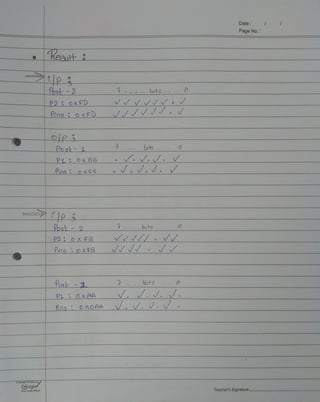 Date : / /
Page No. :
Result :
i/p :
Port - 2 7 .... bits ... 0
P2 : 0xFD ✓ ✓ ✓ ✓ ✓ ✓ . ✓
Pins : 0xFD ✓ ✓ ✓ ✓ ✓ ✓ . ✓
o/p :
Port - 1 7 ... bits ... 0
P1 : 0x55 . ✓ . ✓ . ✓ . ✓
Pins : 0x55 . ✓ . ✓ . ✓ . ✓
i/p :
Port - 2 7 ... bits ... 0
P2 : 0xFB ✓ ✓ ✓ ✓ ✓ . ✓ ✓
Pins : 0xFB ✓ ✓ ✓ ✓ . ✓ ✓
Port - 1 7 ... bits ... 0
P1 : 0xAA ✓ . ✓ . ✓ . ✓ .
Pins : 0x0AA ✓ . ✓ . ✓ . ✓ .
Teacher's Signature